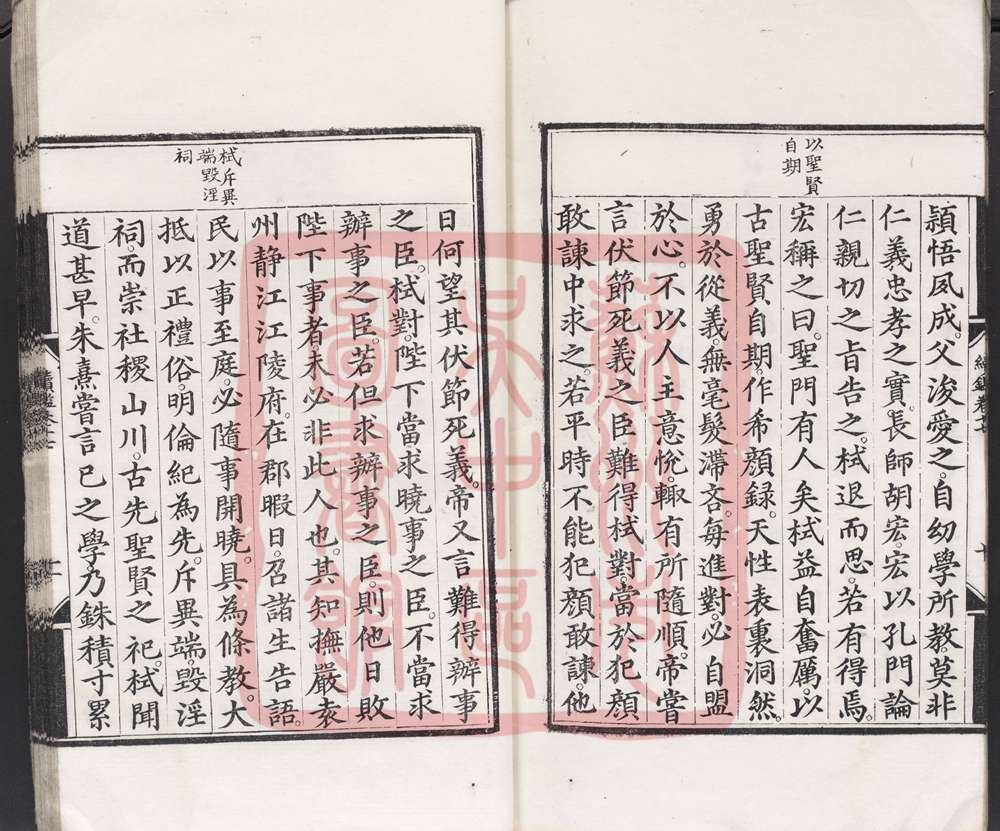 以聖賢
自期
頴悟夙成。父浚愛之。自幼學所教。莫非
仁義忠孝之實。長師胡宏。宏以孔門論
仁親切之㫖告之。栻退而思。若有得焉。
宏稱之曰。聖門有人矣。栻益自奮厲。以
古聖賢自期。作希顔録。天性表裏洞然。
勇於從義。無毫髮滯吝。每進對。必自盟
於心。不以人主意悅。輙有所隨順。帝嘗
言伏節死義之臣難得。栻對。當於犯顔
敢諫中求之。若平時不能犯顔敢諫。他
栻斥異
端毀淫
祠
日何望其伏節死義。帝又言難得辦事
之臣。栻對。陛下當求曉事之臣。不當求
辦事之臣。若但求辦事之臣。則他日敗
陛下事者。未必非此人也。其知撫嚴袁
州靜江江陵府。在郡暇日。召諸生告語。
民以事至庭。必隨事開曉。具為條教。大
抵以正禮俗。明倫紀為先。斥異端。毀淫
祠。而崇社稷山川。古先聖賢之祀。栻聞
道甚早。朱熹嘗言已之學。乃銖積寸累
蘇州市
吳中區
圖書館